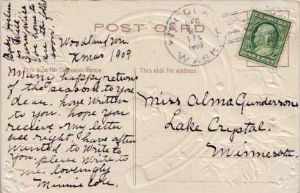 POST CARD
WOODLAND
DEC
1909
WASH.
Woodland Wn.
Xmas 1909
This side for Correspondence.
This side for Address.
Many happy returns
of the season to you
dear. have written
to you. hope you
receive my letter
all right have often
wanted to write to
you. please write to
me lovingly
Minnie
Miss Alma Gunderson
Lake Crystal.
Minnesota